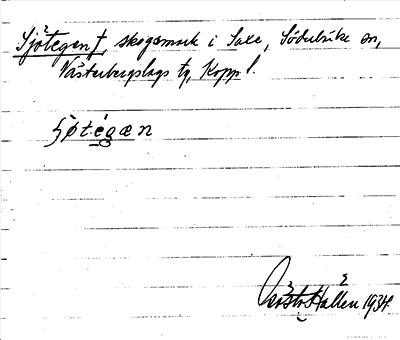 Sjötegen †, skogsmark i Saxe, Söderbärke sn,
Västerbergslags tg, Kopp l.
ʃǿtégæn
Gösta Hallén 1934.